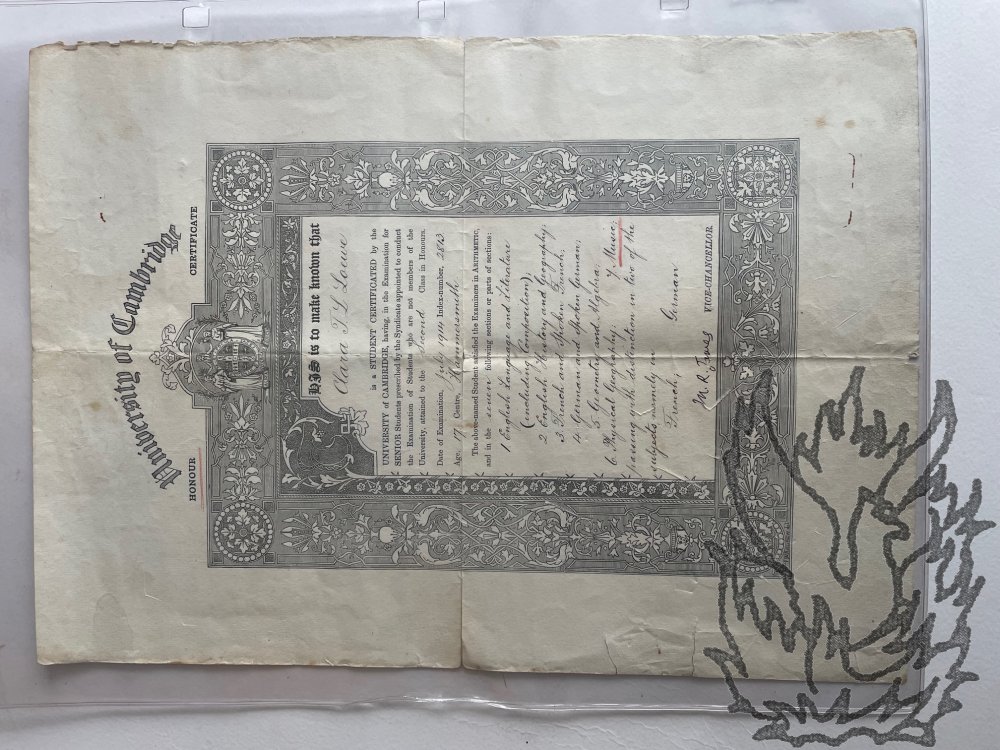 University of Cambridge
HONOUR CERTIFICATE
THIS is to make known that
Clara T L Loewe
is a STUDENT CERTIFICATED by the
UNIVERSITY of CAMBRIDGE, having, in the Examination for
SENIOR Students prescribed by the Syndicate appointed to conduct
the Examination of Students who are not members of the
University, attained to the Second Class in Honours.
Date of Examination, July 1914 Index-number, 2813
Age, 17 Centre, Hammersmith
The above-named Student satisfied the Examiners in ARITHMETIC,
and in the seven following sections or parts of sections:
1 English Language and Literature
(including Composition);
2 English History and Geography;
3. French and Spoken French;
4. German and Spoken German;
5 Geometry and Algebra;
6. Physical Geography; 7 Music;
passing with distinction in two of the
subjects namely in
French, German
VICE-CHANCELLOR